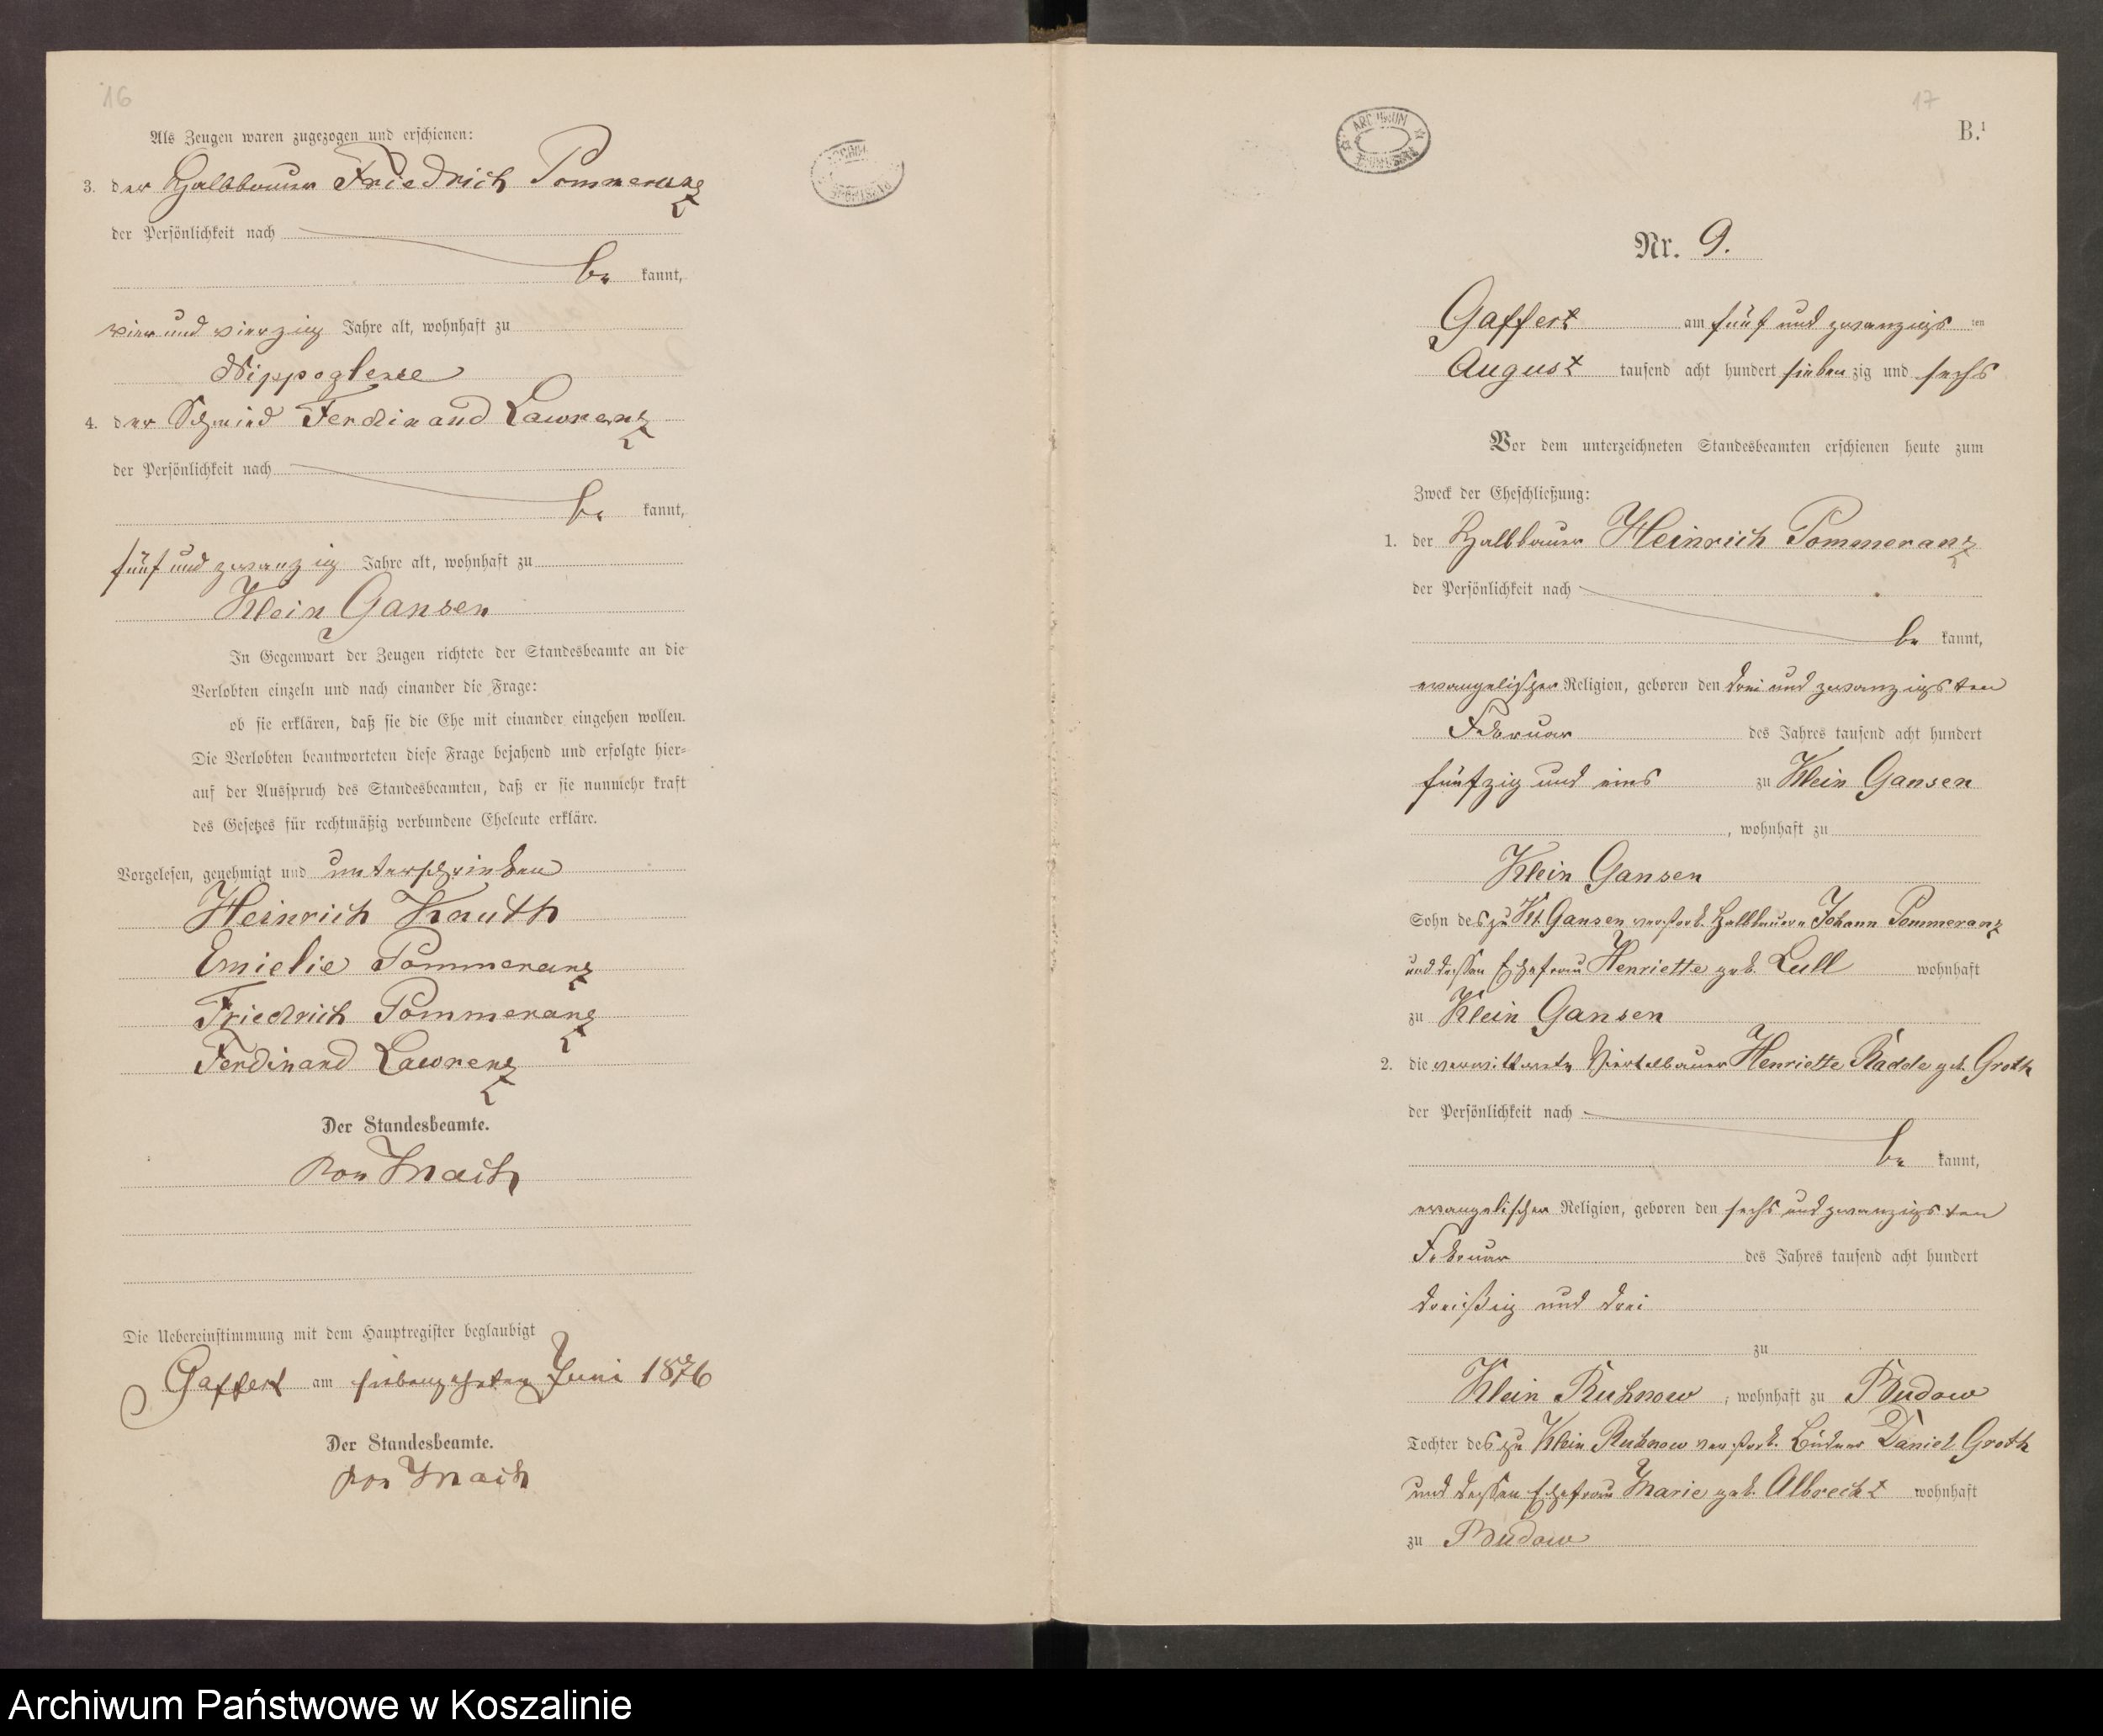 16
Als Zeugen waren zugezogen und erschienen:
3. der Halbbauer Friedrich Pommeranz
der Persönlichkeit nach
be kannt,
vier und vierzig Jahre alt, wohnhaft zu
Nippoglense
4. der Schmied Ferdinand Lawrenz
der Persönlichkeit nach
be kannt,
fünf und zwanzig Jahre alt, wohnhaft zu
Klein Gansen
In Gegenwart der Zeugen richtete der Standesbeamte an die
Verlobten einzeln und nach einander die Frage:
ob sie erklären, daß sie die Ehe mit einander eingehen wollen.
Die Verlobten beantworteten diese Frage bejahend und erfolgte hier-
auf der Ausspruch des Standesbeamten, daß er sie nunmehr kraft
des Gesetzes für rechtmäßig verbundene Eheleute erkläre.
Vorgelesen, genehmigt und unterschrieben
Heinrich Knuth
Emielie Pommeranz
Friedrich Pommeranz
Ferdinand Lawrenz
Der Standesbeamte.
von Mach
Die Uebereinstimmung mit dem Hauptregister beglaubigt
Gaffert am siebenzehnten Juni 1876
Der Standesbeamte.
von Mach
17
ARCHIWUM
B.1
Nr. 9.
Gaffert am fünf und zwanzigs ten
August tausend acht hundert sieben zig und sechs
Vor dem unterzeichneten Standesbeamten erschienen heute zum
Zweck der Eheschließung:
1. der Halbbauer Heinrich Pommeranz
der Persönlichkeit nach
be kannt,
evangelischer Religion, geboren den drei und zwanzigsten
Februar des Jahres tausend acht hundert
fünfzig und eins zu Klein Gansen
, wohnhaft zu
Klein Gansen
Sohn des zu Kl. Gansen verstorb. Halbbauern Johann Pommeranz
und dessen Ehefrau Henriette geb. Lull wohnhaft
zu Klein Gansen
2. die verwittwete Viertelbauer Henriette Radde geb. Groth
der Persönlichkeit nach
be kannt,
evangelischer Religion, geboren den sechs und zwanzigsten
Februar des Jahres tausend acht hundert
dreißig und drei
zu
Klein Ruhnow, wohnhaft zu Budow
Tochter des zu Klein Ruhnow verstorb. Büdner Daniel Groth
und dessen Ehefrau Marie geb. Albrecht wohnhaft
zu Budow
Archiwum Państwowe w Koszalinie